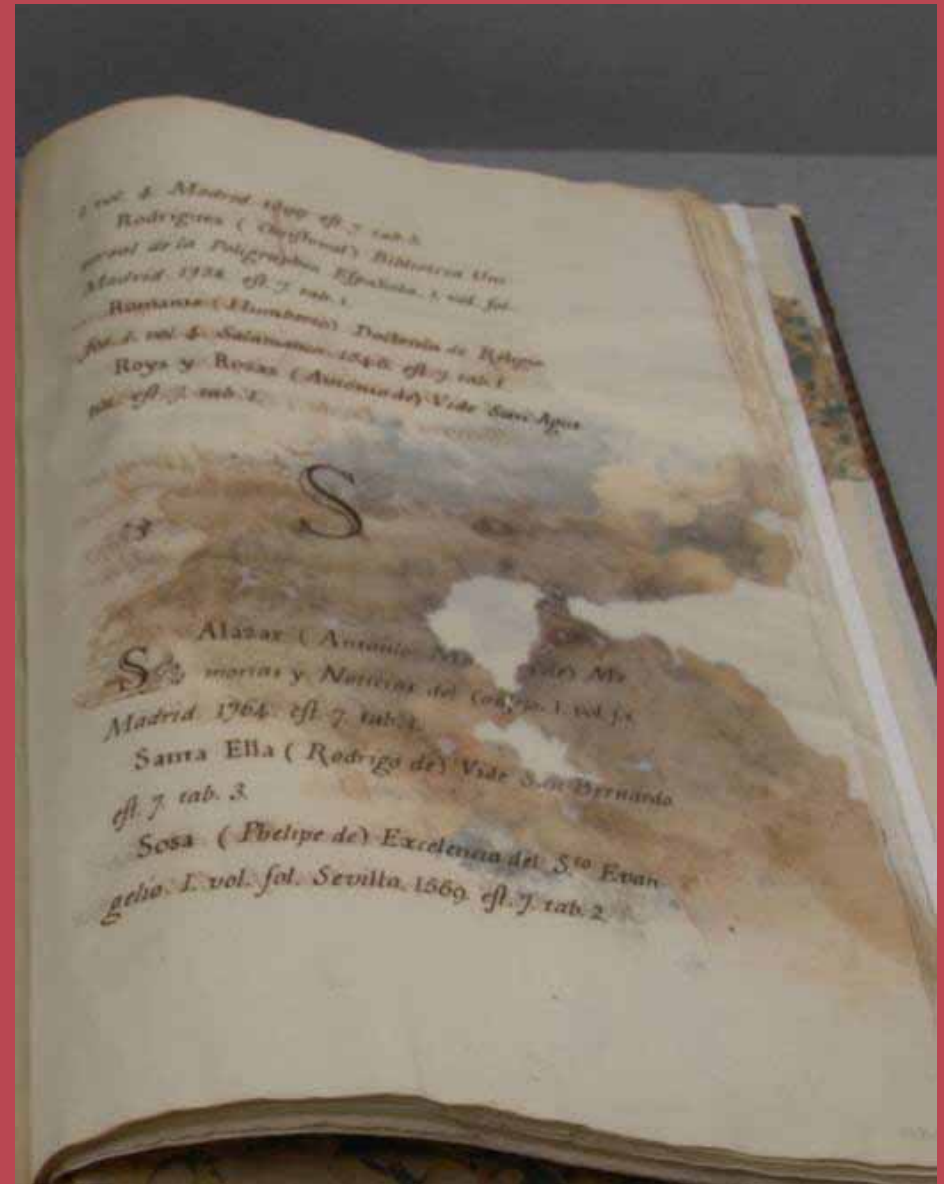 1. vol. 4. Madrid. 1699. est. 7. tab. 3.
Rodrigues (Christoval) Biblioteca Uni-
versal de la Poligraphia Española. 1. vol. fol.
Madrid. 1738. est. 7. tab. 1.
Romanis (Humberto) Doctrina de Religio-
sos. 1. vol. 4. Salamanca. 1546. est. 7. tab. 1.
Roys y Rosas (Antonio de) Vide San Agus-
tin. est. 7. tab. 1.
S
S Alazar (Antonio de) Me
morias y Noticias del 1. vol. fol.
Madrid. 1764. est. 7. tab. 1.
Santa Ella (Rodrigo de) Vide San Bernardo
est. 7. tab. 3.
Sosa (Phelipe de) Excelencia del S.to Evan-
gelio. 1. vol. fol. Sevilla. 1569. est. 7. tab. 2